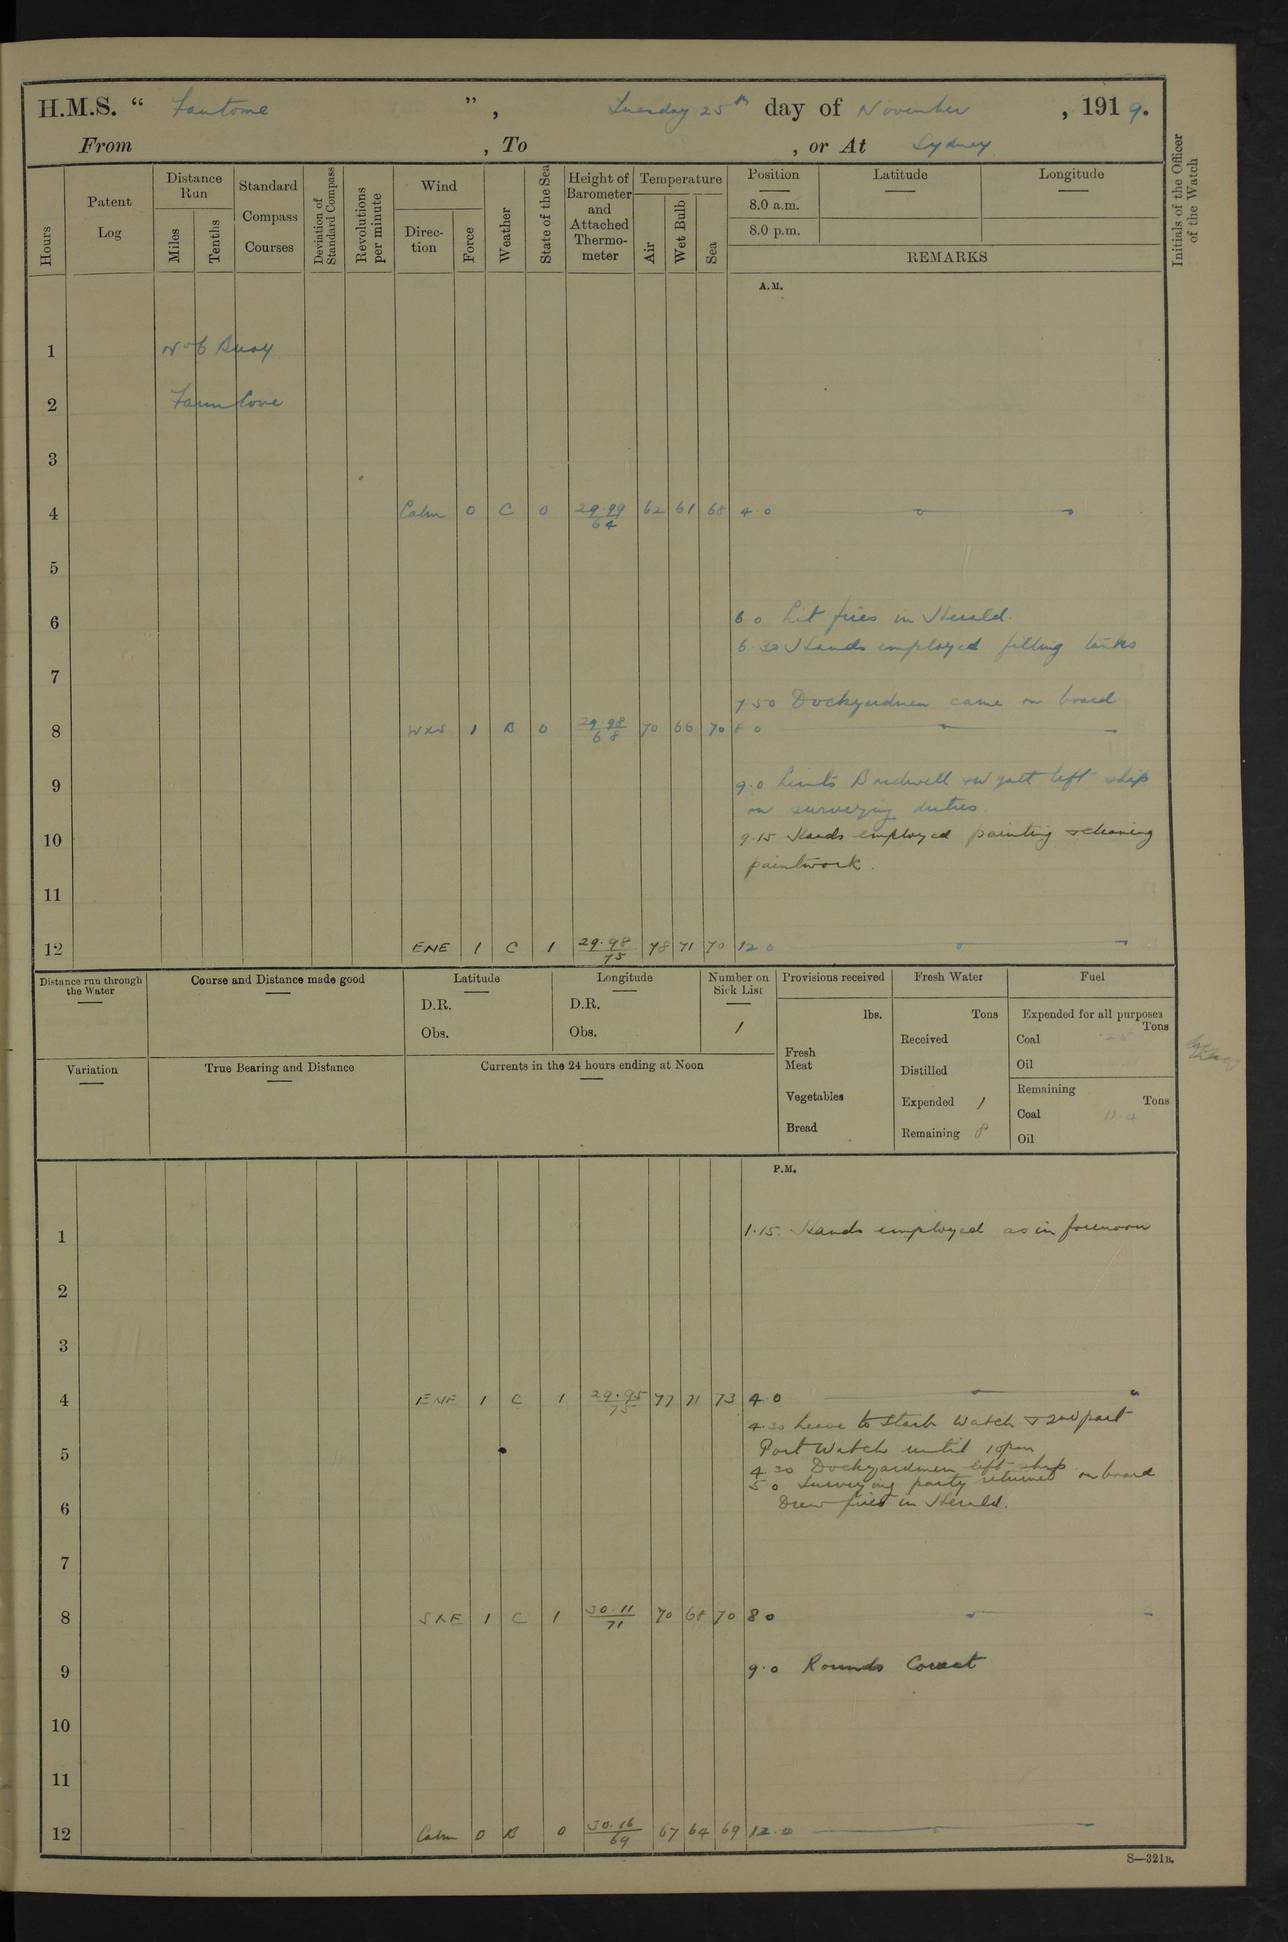 H.M.S. “ Fantome ”, Tuesday 25th day of November, 1919.
From , To , or At Sydney
Hours
Patent Log
Distance Run
Miles
Tenths
Standard Compass Courses
Deviation of Standard Compass
Revolutions per minute
Wind
Direction
Force
Weather
State of the Sea
Height of Barometer and Attached Thermometer
Temperature
Air
Wet Bulb
Sea
Position
8.0 a.m.
8.0 p.m.
Latitude
Longitude
REMARKS
Initials of the Officer of the Watch
A.M.
1 No 6 Buoy
2 Farm Cove
3
4 Calm 0 C 0 29.99/64 62 61 68 4 0
5
6 6 0 Lit fires in Herald.
6.30 Hands employed filling tanks
7
7 50 Dockyardmen came on board
8 1 B 0 29.98/68 70 66 70 8 0
9 9.0 Lieuts Bardwell & Wyatt left ship
on surveying duties
10 9.15 Hands employed painting & cleaning
paintwork.
11
12 ENE 1 C 1 29.98/75 78 71 70 12 0
Distance run through the Water
Course and Distance made good
Latitude
D.R.
Obs.
Longitude
D.R.
Obs.
Number on Sick List
1
Provisions received
lbs.
Fresh Meat
Vegetables
Bread
Fresh Water
Tons
Received
Distilled
Expended 1
Remaining 8
Fuel
Expended for all purposes
Tons
Coal .25
Oil
Remaining
Tons
Coal 11.4
Oil
Variation
True Bearing and Distance
Currents in the 24 hours ending at Noon
P.M.
1 1.15 Hands employed as in forenoon
2
3
4 ENE 1 C 1 29.95/75 77 71 73 4.0
4.30 Leave to Starb Watch & 2nd part
5 Port Watch until 10pm
4 30 Dockyardmen left ship
5 0 Surveying party returned on board
6 Drew fires in Herald.
7
8 1 C 1 30.11/71 70 68 70 8 0
9 9.0 Rounds Correct
10
11
12 Calm 0 B 0 30.16/69 67 64 69 12.0
S—321B.